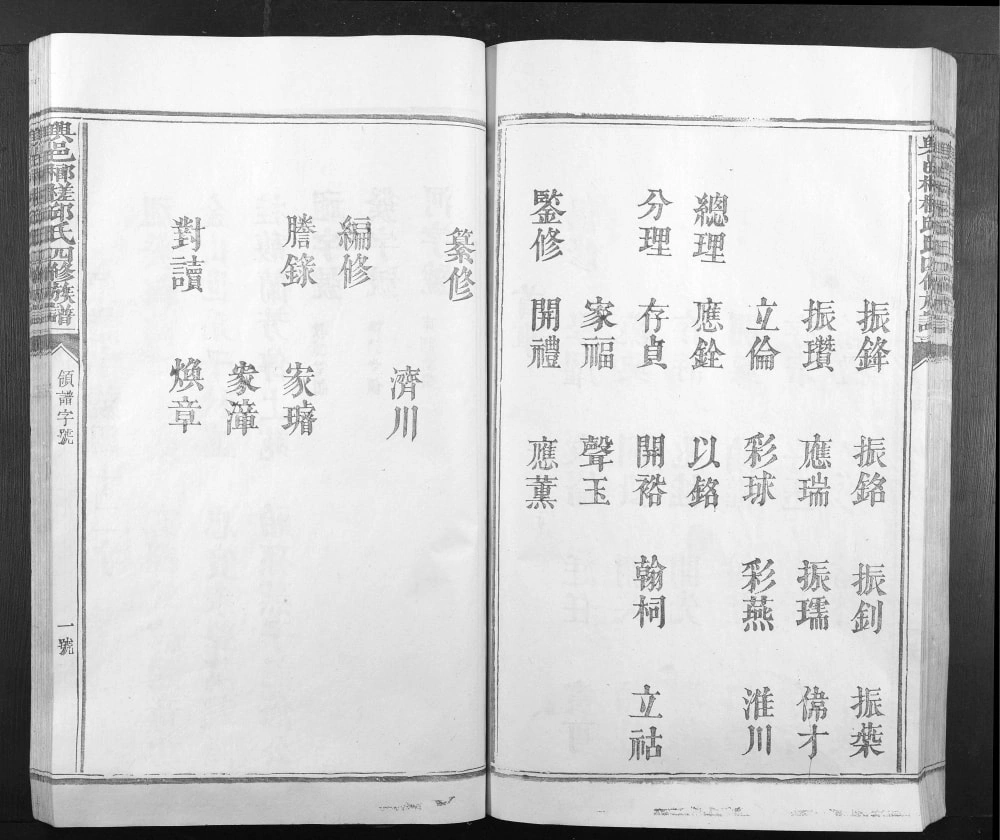 振鋒 振銘 振釗 振葉
振瓚 應瑞 振瓀 偉才
立倫 彩球 彩燕 淮川
總理 應銓 以銘
分理 存貞 開裕 翰桐 立祜
家福 聲玉
監修 開禮 應薰
纂修
濟川
編修
謄錄 家璿
家漳
對讀 煥章
興邑 邱氏四修族譜
領譜字號
一號